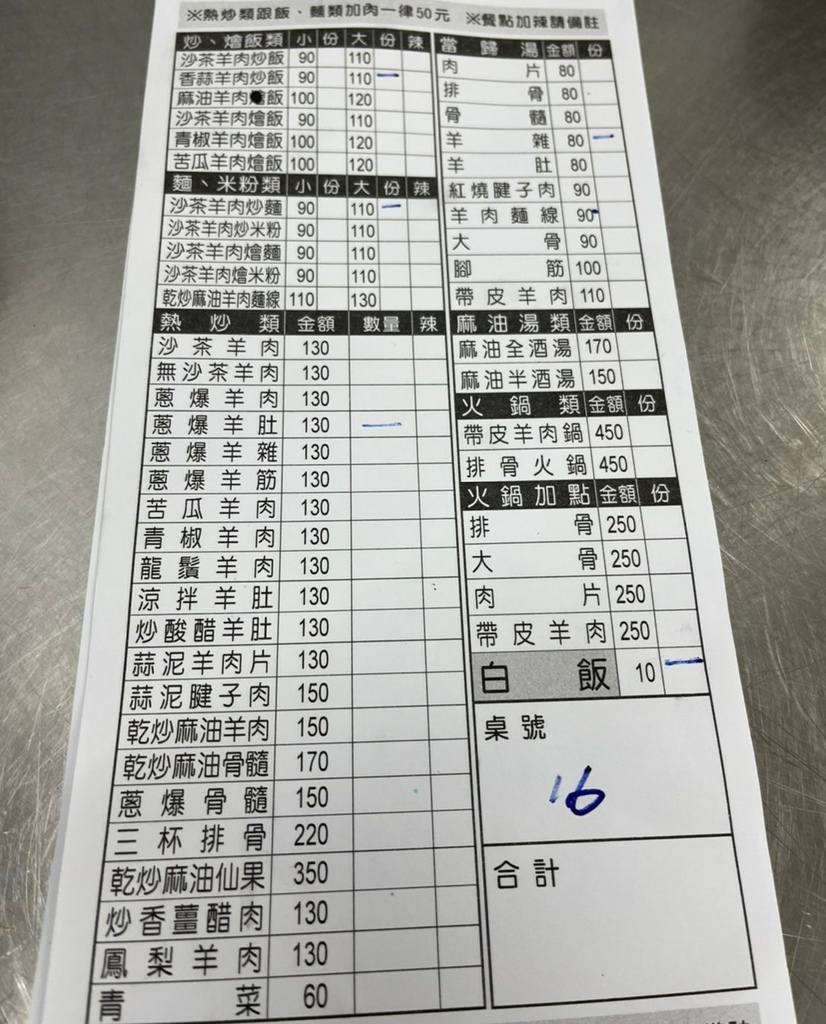 ※熱炒類跟飯、麵類加肉一律50元 ※餐點加辣請備註
炒、燴飯類 小 份 大 份 辣
沙茶羊肉炒飯 90 110
香蒜羊肉炒飯 90 110 一
麻油羊肉飯 100 120
沙茶羊肉燴飯 90 110
青椒羊肉燴飯 100 120
苦瓜羊肉燴飯 100 120
麵、米粉類 小 份 大 份 辣
沙茶羊肉炒麵 90 110 一
沙茶羊肉炒米粉 90 110
沙茶羊肉燴麵 90 110
沙茶羊肉燴米粉 90 110
乾炒麻油羊肉麵線 110 130
熱炒類 金額 數量 辣
沙茶羊肉 130
無沙茶羊肉 130
蔥爆羊肉 130
蔥爆羊肚 130 一
蔥爆羊雜 130
蔥爆羊筋 130
苦瓜羊肉 130
青椒羊肉 130
龍鬚羊肉 130
涼拌羊肚 130
炒酸醋羊肚 130
蒜泥羊肉片 130
蒜泥腱子肉 150
乾炒麻油羊肉 150
乾炒麻油骨髓 170
蔥爆骨髓 150
三杯排骨 220
乾炒麻油仙果 350
炒香薑醋肉 130
鳳梨羊肉 130
青菜 60
當歸湯 金額 份
肉片 80
排骨 80
骨髓 80
羊雜 80 一
羊肚 80
紅燒腱子肉 90
羊肉麵線 90
大骨 90
腳筋 100
帶皮羊肉 110
麻油湯類 金額 份
麻油全酒湯 170
麻油半酒湯 150
火鍋類 金額 份
帶皮羊肉鍋 450
排骨火鍋 450
火鍋加點 金額 份
排骨 250
大骨 250
肉片 250
帶皮羊肉 250
白飯 10 一
桌號
16
合計